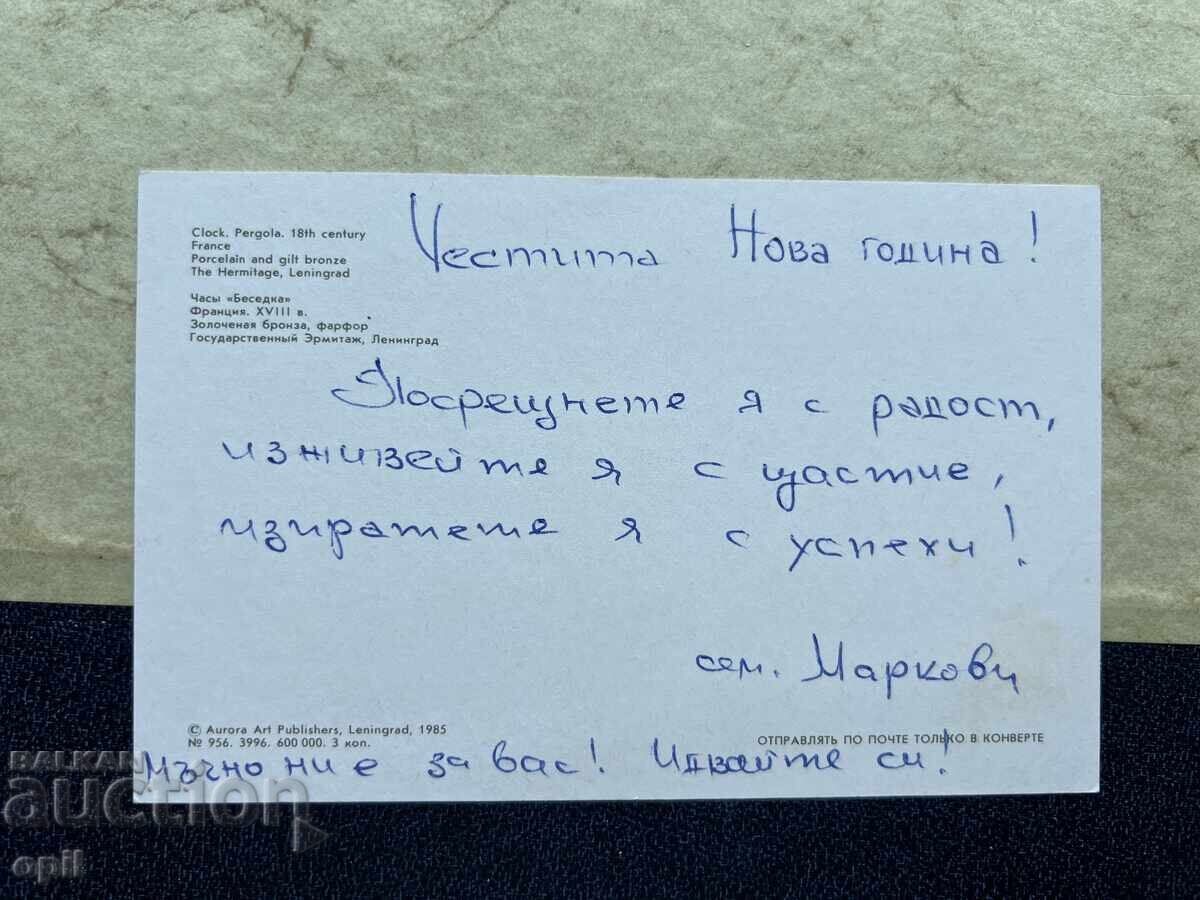 Clock. Pergola. 18th century
France
Porcelain and gilt bronze
The Hermitage, Leningrad
Часы «Беседка»
Франция. XVIII в.
Золоченая бронза, фарфор
Государственный Эрмитаж, Ленинград
Честита Нова година!
Посрещнете я с радост,
изживейте я с щастие,
изпратете я с успехи!
сем. Маркови
© Aurora Art Publishers, Leningrad, 1985
№ 956. 3996. 600 000. 3 коп.
ОТПРАВЛЯТЬ ПО ПОЧТЕ ТОЛЬКО В КОНВЕРТЕ
Мъчно ни е за вас! Идвайте си!
BALKAN
auction
opil